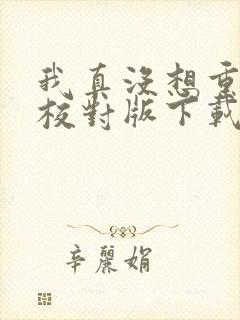 我真沒想重
校對版下載
辛麗娟